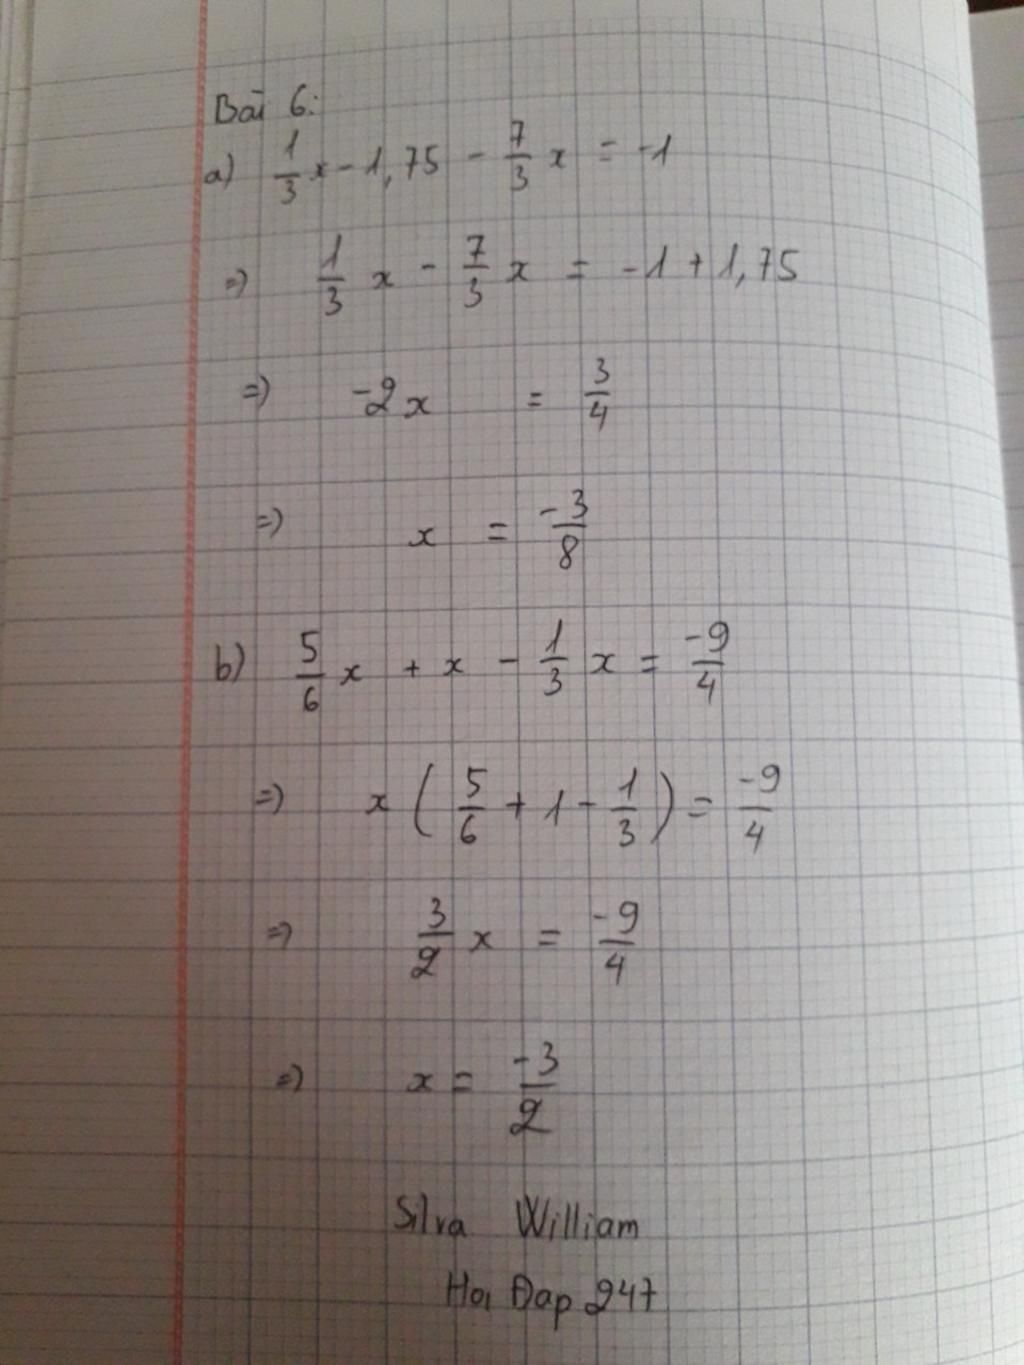 Bài 6:
a) 1/3 x - 1,75 - 7/3 x = -1
=) 1/3 x - 7/3 x = -1 + 1,75
=) -2x = 3/4
=) x = -3/8
b) 5/6 x + x - 1/3 x = -9/4
=) x ( 5/6 + 1 - 1/3 ) = -9/4
=) 3/2 x = -9/4
=) x = -3/2
Silva William
Hoi Đap 247